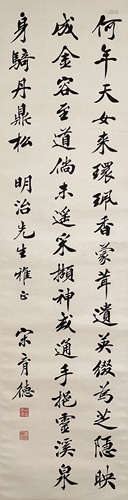 何年天女来環珮香蒙茸遺英綴為芝隐映
成金容至道倘未遥采擷神或通手挹靈溪泉
身騎丹鼎松 明治先生雅正
宋育德